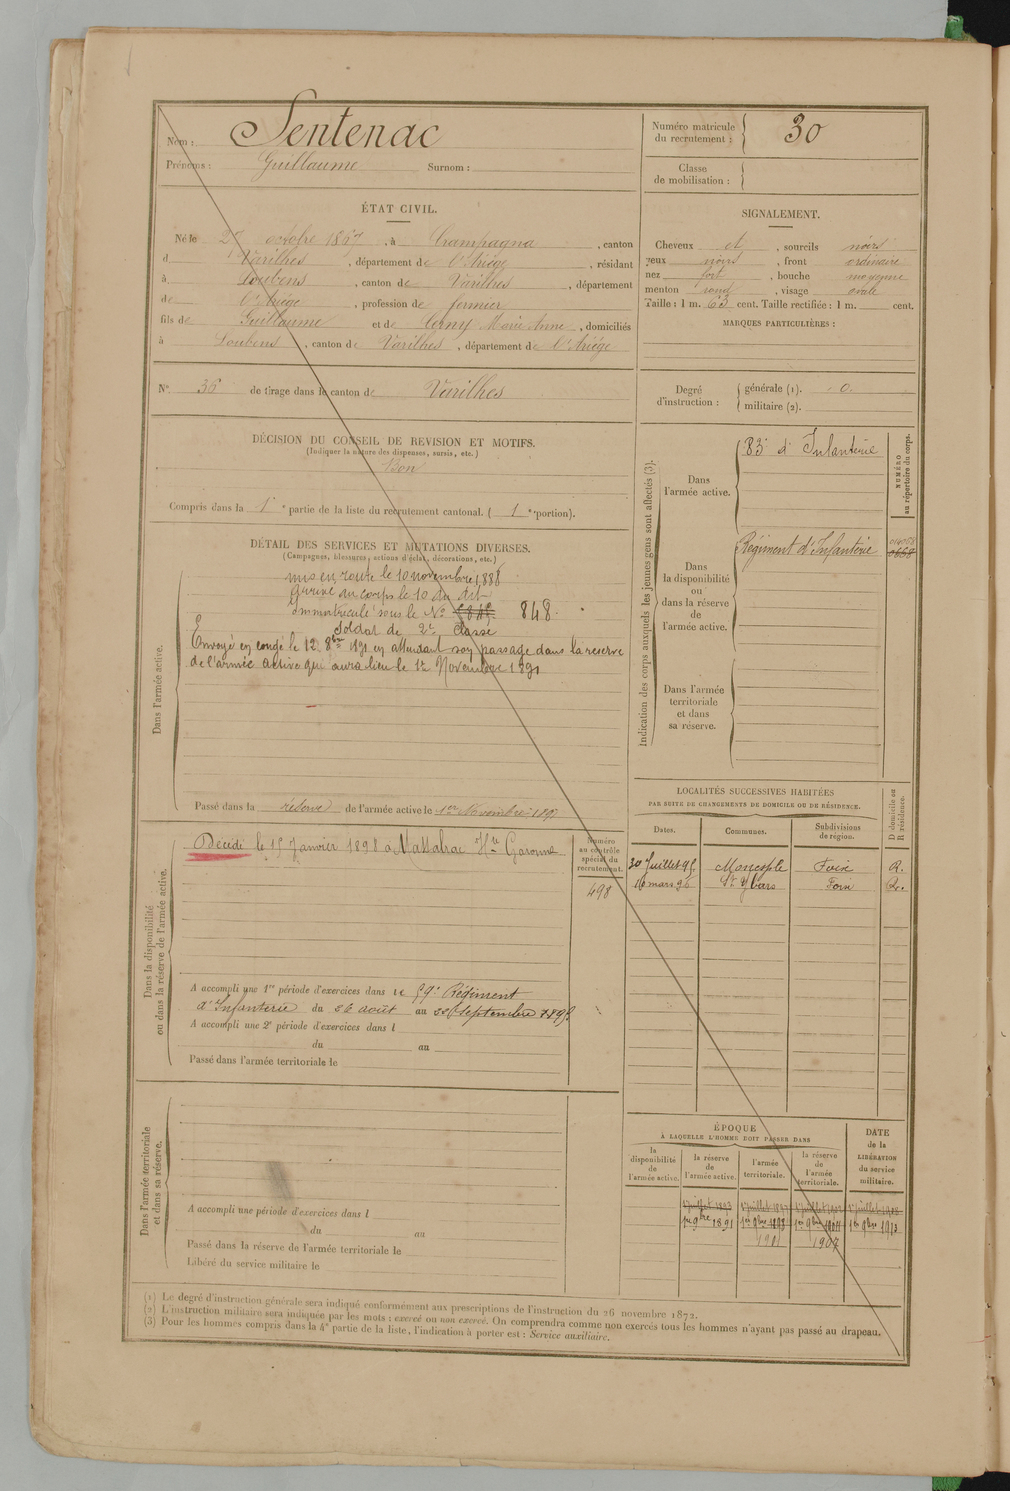 Nom : Sentenac
Prénoms : Guillaume Surnom :
Numéro matricule
du recrutement : 30
Classe
de mobilisation :
ÉTAT CIVIL.
Né le 27 octobre 1867, à Crampagna, canton
d Varilhes, département de l'Ariège, résidant
à Loubens, canton de Varilhes, département
de l'Ariège, profession de fermier
fils de Guillaume et de Marie Anne, domiciliés
à Loubens, canton de Varilhes, département de l'Ariège
N° 36 de tirage dans le canton de Varilhes
SIGNALEMENT.
Cheveux et, sourcils noirs
yeux noirs, front ordinaire
nez fort, bouche moyenne
menton rond, visage ovale
Taille : 1 m. 63 cent. Taille rectifiée : 1 m. cent.
MARQUES PARTICULIÈRES :
Degré
d'instruction :
générale (1). 0
militaire (2).
DÉCISION DU CONSEIL DE REVISION ET MOTIFS.
(Indiquer la nature des dispenses, sursis, etc.)
Bon
Compris dans la 1e partie de la liste du recrutement cantonal. ( 1e portion).
DÉTAIL DES SERVICES ET MUTATIONS DIVERSES.
(Campagnes, blessures, actions d'éclat, décorations, etc.)
Dans l'armée active.
mis en route le 10 novembre 1888
arrivé au corps le 10 du dit
Immatriculé sous le N° 848.
Soldat de 2e classe
Envoyé en congé le 12 8bre 1891 en attendant son passage dans la réserve
de l'armée active qui aura lieu le 1er Novembre 1891
Passé dans la réserve de l'armée active le 1er Novembre 1891
Indication des corps auxquels les jeunes gens sont affectés (3).
NUMÉRO
au répertoire du corps.
Dans
l'armée active.
83e d'Infanterie
Dans
la disponibilité
ou
dans la réserve
de
l'armée active.
Régiment d'Infanterie
Dans l'armée
territoriale
et dans
sa réserve.
LOCALITÉS SUCCESSIVES HABITÉES
PAR SUITE DE CHANGEMENTS DE DOMICILE OU DE RÉSIDENCE.
Dates. Communes. Subdivisions
de région. D domicile ou
R résidence.
30 Juillet 95 Monesple Foix R.
16 mars 96 St Ybars Foix R.
Dans la disponibilité
ou dans la réserve de l'armée active.
Décédé le 15 Janvier 1898 a Hte Garonne
Numéro
au contrôle
spécial du
recrutement.
498
A accompli une 1re période d'exercices dans le 59e Régiment
d'Infanterie du 26 août au 22 Septembre 1895
A accompli une 2e période d'exercices dans l
du au
Passé dans l'armée territoriale le
Dans l'armée territoriale
et dans sa réserve.
A accompli une période d'exercices dans l
du au
Passé dans la réserve de l'armée territoriale le
Libéré du service militaire le
ÉPOQUE
A LAQUELLE L'HOMME DOIT PASSER DANS
la
disponibilité
de
l'armée active.
la réserve
de
l'armée active.
l'armée
territoriale.
la réserve
de
l'armée
territoriale.
DATE
de la
LIBÉRATION
du service
militaire.
1er 9bre 1891 1er 9bre 1898 1er 9bre 1904 1er 9bre 1913
1901 1907
(1) Le degré d'instruction générale sera indiqué conformément aux prescriptions de l'instruction du 26 novembre 1872.
(2) L'instruction militaire sera indiquée par les mots : exercé ou non exercé. On comprendra comme non exercés tous les hommes n'ayant pas passé au drapeau.
(3) Pour les hommes compris dans la 4e partie de la liste, l'indication à porter est : Service auxiliaire.